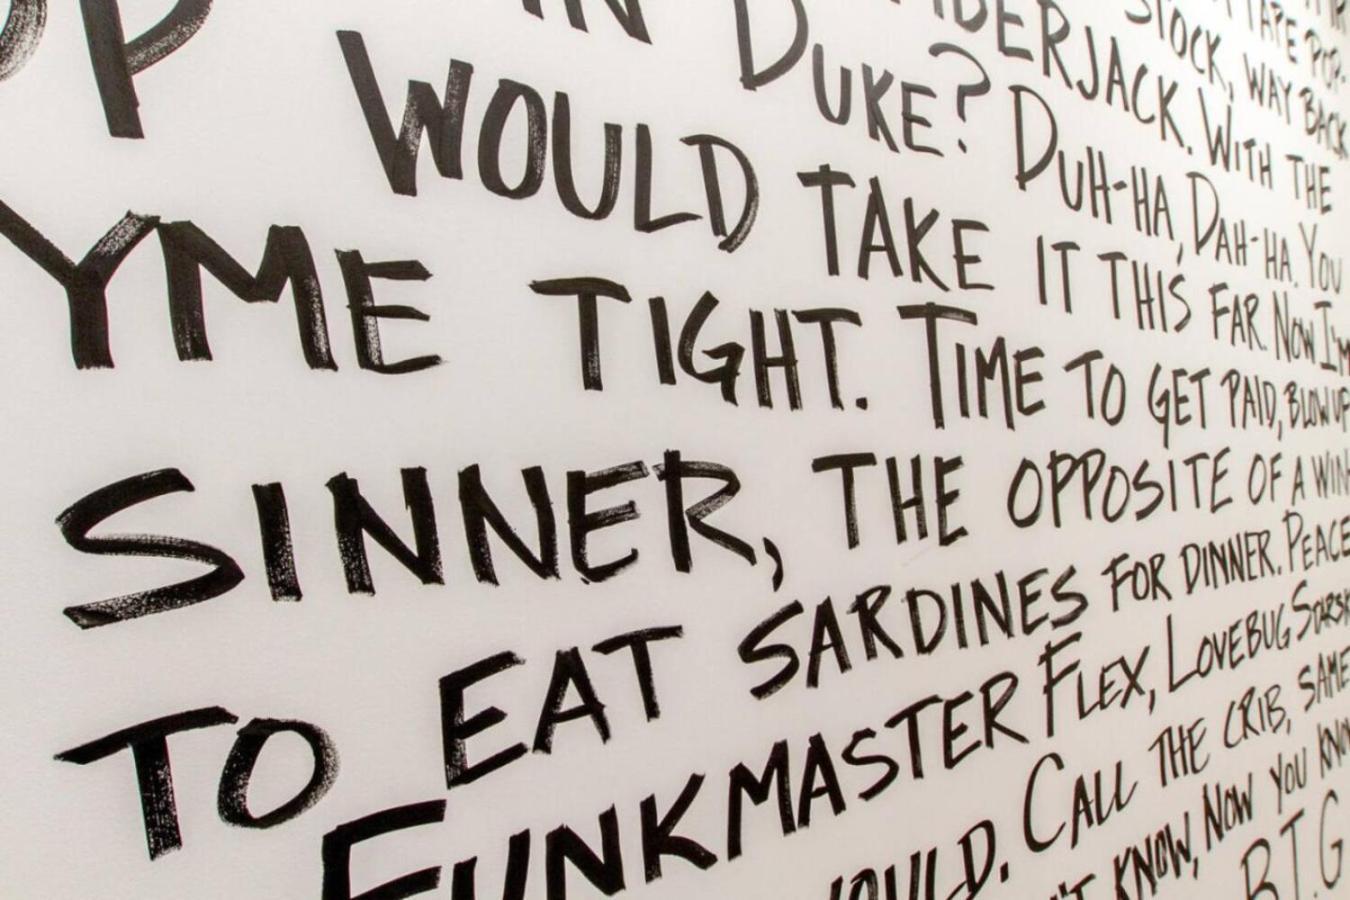 TAPE POP-
STOCK, WAY BACK
BERJACK. WITH THE
IN DUKE? DUH-HA, DAH-HA. YOU
OP WOULD TAKE IT THIS FAR. NOW I'M
YME TIGHT. TIME TO GET PAID, BLOW UP
SINNER, THE OPPOSITE OF A WIN-
TO EAT SARDINES FOR DINNER. PEACE
FUNKMASTER FLEX, LOVEBUG STARSK
OULD. CALL THE CRIB, SAME
'T KNOW, NOW YOU KNOW
B.I.G